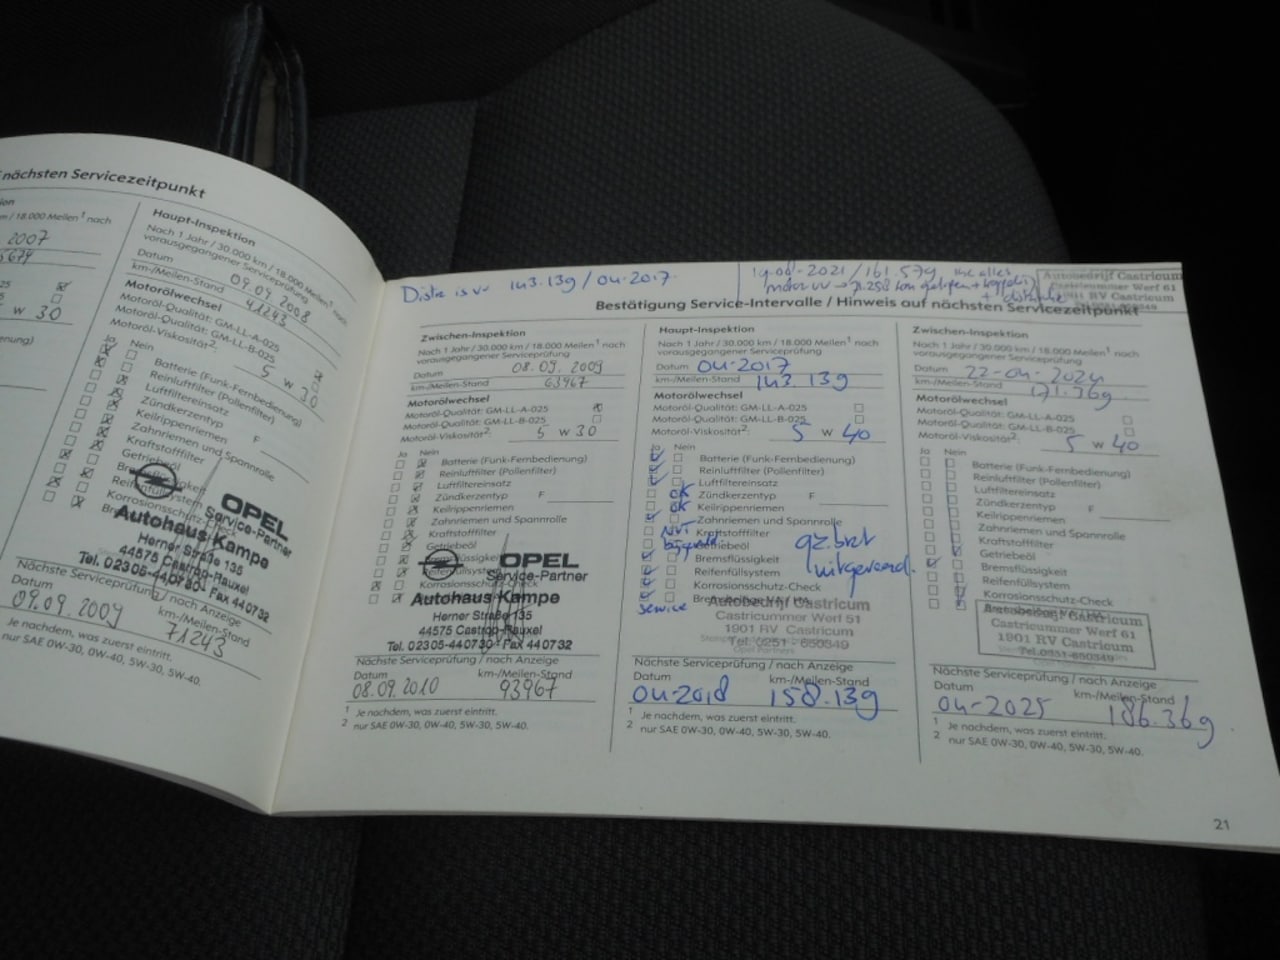 nächsten Servicezeitpunkt
m / 18.000 Meilen¹ nach
2007
w 30
Haupt-Inspektion
Nach 1 Jahr / 30.000 km / 18.000 Meilen¹ nach
vorausgegangener Serviceprüfung
Datum 09.09.2008
km-/Meilen-Stand 41243
Motorölwechsel
Motoröl-Qualität: GM-LL-A-025
Motoröl-Qualität: GM-LL-B-025
Motoröl-Viskosität²: 5 w 30
Ja Nein
Batterie (Funk-Fernbedienung)
Reinluftfilter (Pollenfilter)
Luftfiltereinsatz
Zündkerzentyp F
Keilrippenriemen
Zahnriemen und Spannrolle
Kraftstofffilter
Getriebeöl
OPEL
Service-Partner
Autohaus Kampe
Herner Straße 135
44575 Castrop-Rauxel
Tel. 02305-440730 · Fax 440732
Nächste Serviceprüfung / nach Anzeige
Datum km-/Meilen-Stand
09.09.2009 71243
Je nachdem, was zuerst eintritt.
nur SAE 0W-30, 0W-40, 5W-30, 5W-40.
143.139 / 04-2017
19-08-2021 / 161.579
Autobedrijf Castricum
Castricummer Werf 61
1901 RV Castricum
Bestätigung Service-Intervalle / Hinweis auf nächsten Servicezeitpunkt
Zwischen-Inspektion
Nach 1 Jahr / 30.000 km / 18.000 Meilen¹ nach
vorausgegangener Serviceprüfung
Datum 08.09.2009
km-/Meilen-Stand 63967
Motorölwechsel
Motoröl-Qualität: GM-LL-A-025
Motoröl-Qualität: GM-LL-B-025
Motoröl-Viskosität²: 5 w 30
Ja Nein
Batterie (Funk-Fernbedienung)
Reinluftfilter (Pollenfilter)
Luftfiltereinsatz
Zündkerzentyp F
Keilrippenriemen
Zahnriemen und Spannrolle
Kraftstofffilter
Getriebeöl
OPEL
Service-Partner
Autohaus Kampe
Herner Straße 135
44575 Castrop-Rauxel
Tel. 02305-440730 · Fax 440732
Nächste Serviceprüfung / nach Anzeige
Datum km-/Meilen-Stand
08.09.2010 93967
1 Je nachdem, was zuerst eintritt.
2 nur SAE 0W-30, 0W-40, 5W-30, 5W-40.
Haupt-Inspektion
Nach 1 Jahr / 30.000 km / 18.000 Meilen¹ nach
vorausgegangener Serviceprüfung
Datum 04-2017
km-/Meilen-Stand 143.139
Motorölwechsel
Motoröl-Qualität: GM-LL-A-025
Motoröl-Qualität: GM-LL-B-025
Motoröl-Viskosität²: 5 w 40
Ja Nein
Batterie (Funk-Fernbedienung)
Reinluftfilter (Pollenfilter)
Luftfiltereinsatz
OK Zündkerzentyp F
OK Keilrippenriemen
Zahnriemen und Spannrolle
Kraftstofffilter
Getriebeöl
Bremsflüssigkeit
Reifenfüllsystem
Korrosionsschutz-Check
service
Autobedrijf Castricum
Castricummer Werf 51
1901 RV Castricum
Tel. 0251 - 650349
Nächste Serviceprüfung / nach Anzeige
Datum km-/Meilen-Stand
04-2018 158.139
1 Je nachdem, was zuerst eintritt.
2 nur SAE 0W-30, 0W-40, 5W-30, 5W-40.
Zwischen-Inspektion
Nach 1 Jahr / 30.000 km / 18.000 Meilen¹ nach
vorausgegangener Serviceprüfung
Datum 22-04-2024
km-/Meilen-Stand 171.369
Motorölwechsel
Motoröl-Qualität: GM-LL-A-025
Motoröl-Qualität: GM-LL-B-025
Motoröl-Viskosität²: 5 w 40
Ja Nein
Batterie (Funk-Fernbedienung)
Reinluftfilter (Pollenfilter)
Luftfiltereinsatz
Zündkerzentyp F
Keilrippenriemen
Zahnriemen und Spannrolle
Kraftstofffilter
Getriebeöl
Bremsflüssigkeit
Reifenfüllsystem
Korrosionsschutz-Check
Autobedrijf Castricum
Castricummer Werf 61
1901 RV Castricum
Tel.0251-650349
Nächste Serviceprüfung / nach Anzeige
Datum km-/Meilen-Stand
04-2025 186.369
1 Je nachdem, was zuerst eintritt.
2 nur SAE 0W-30, 0W-40, 5W-30, 5W-40.
21